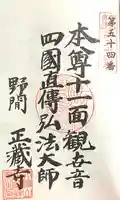 第五十四番
本尊十一面觀世音
四國直傳弘法大師
野間
正藏寺